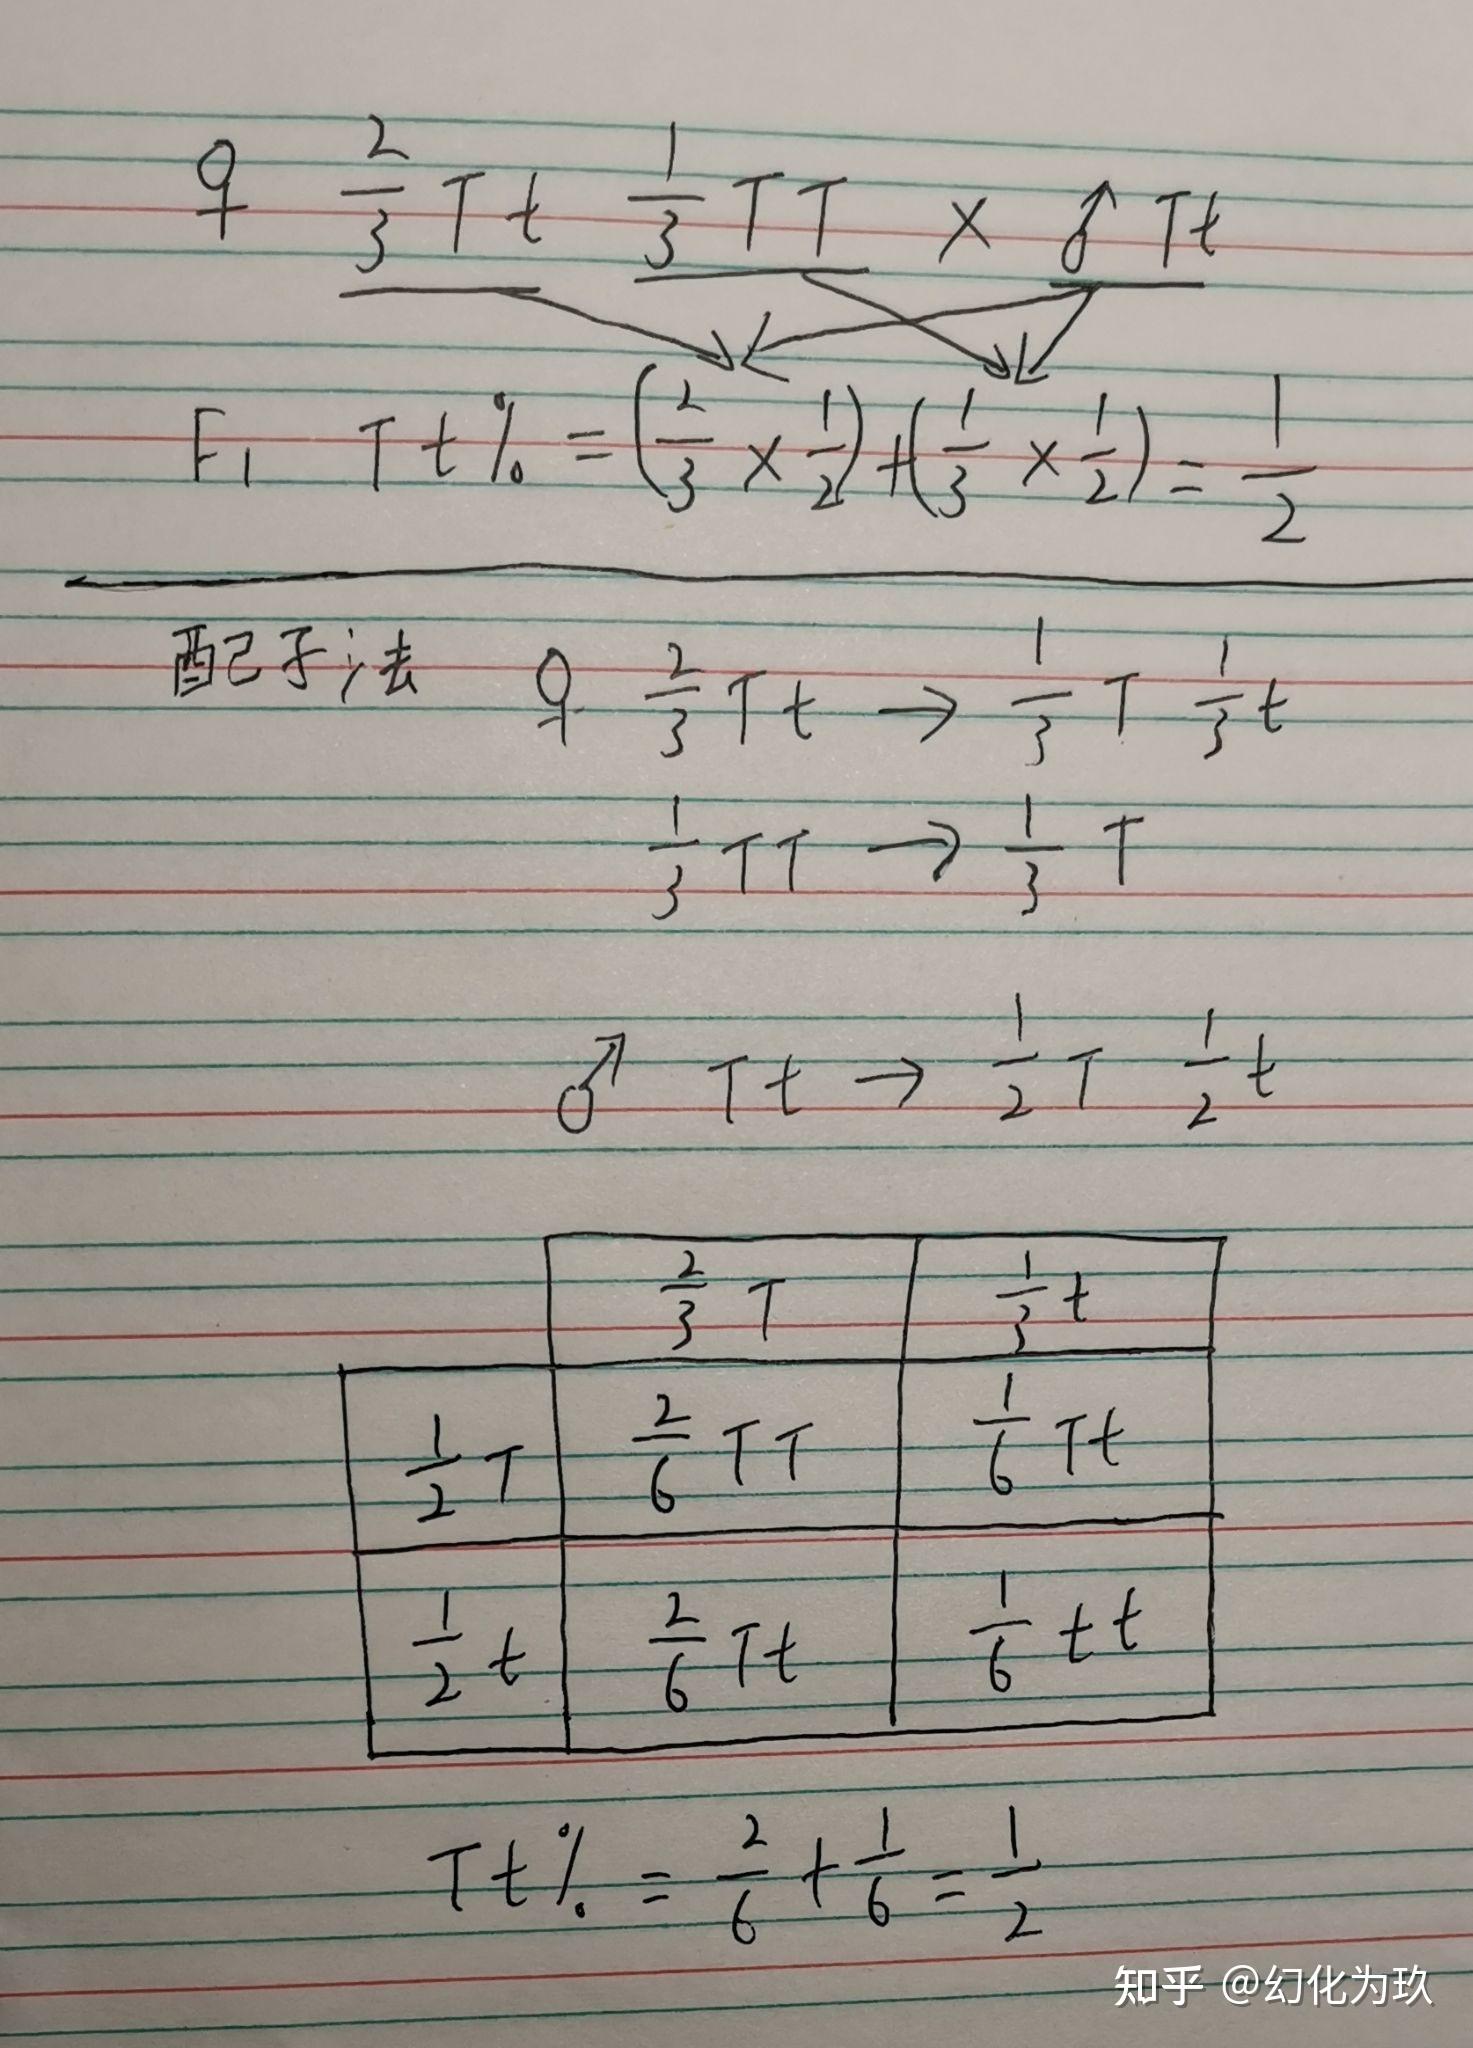 ♀ 2/3 Tt 1/3 TT × ♂ Tt
F₁ Tt% = (2/3 × 1/2) + (1/3 × 1/2) = 1/2
配子法 ♀ 2/3 Tt → 1/3 T 1/3 t
1/3 TT → 1/3 T
♂ Tt → 1/2 T 1/2 t
2/3 T 1/3 t
1/2 T 2/6 TT 1/6 Tt
1/2 t 2/6 Tt 1/6 tt
Tt% = 2/6 + 1/6 = 1/2
知乎 @幻化为玖